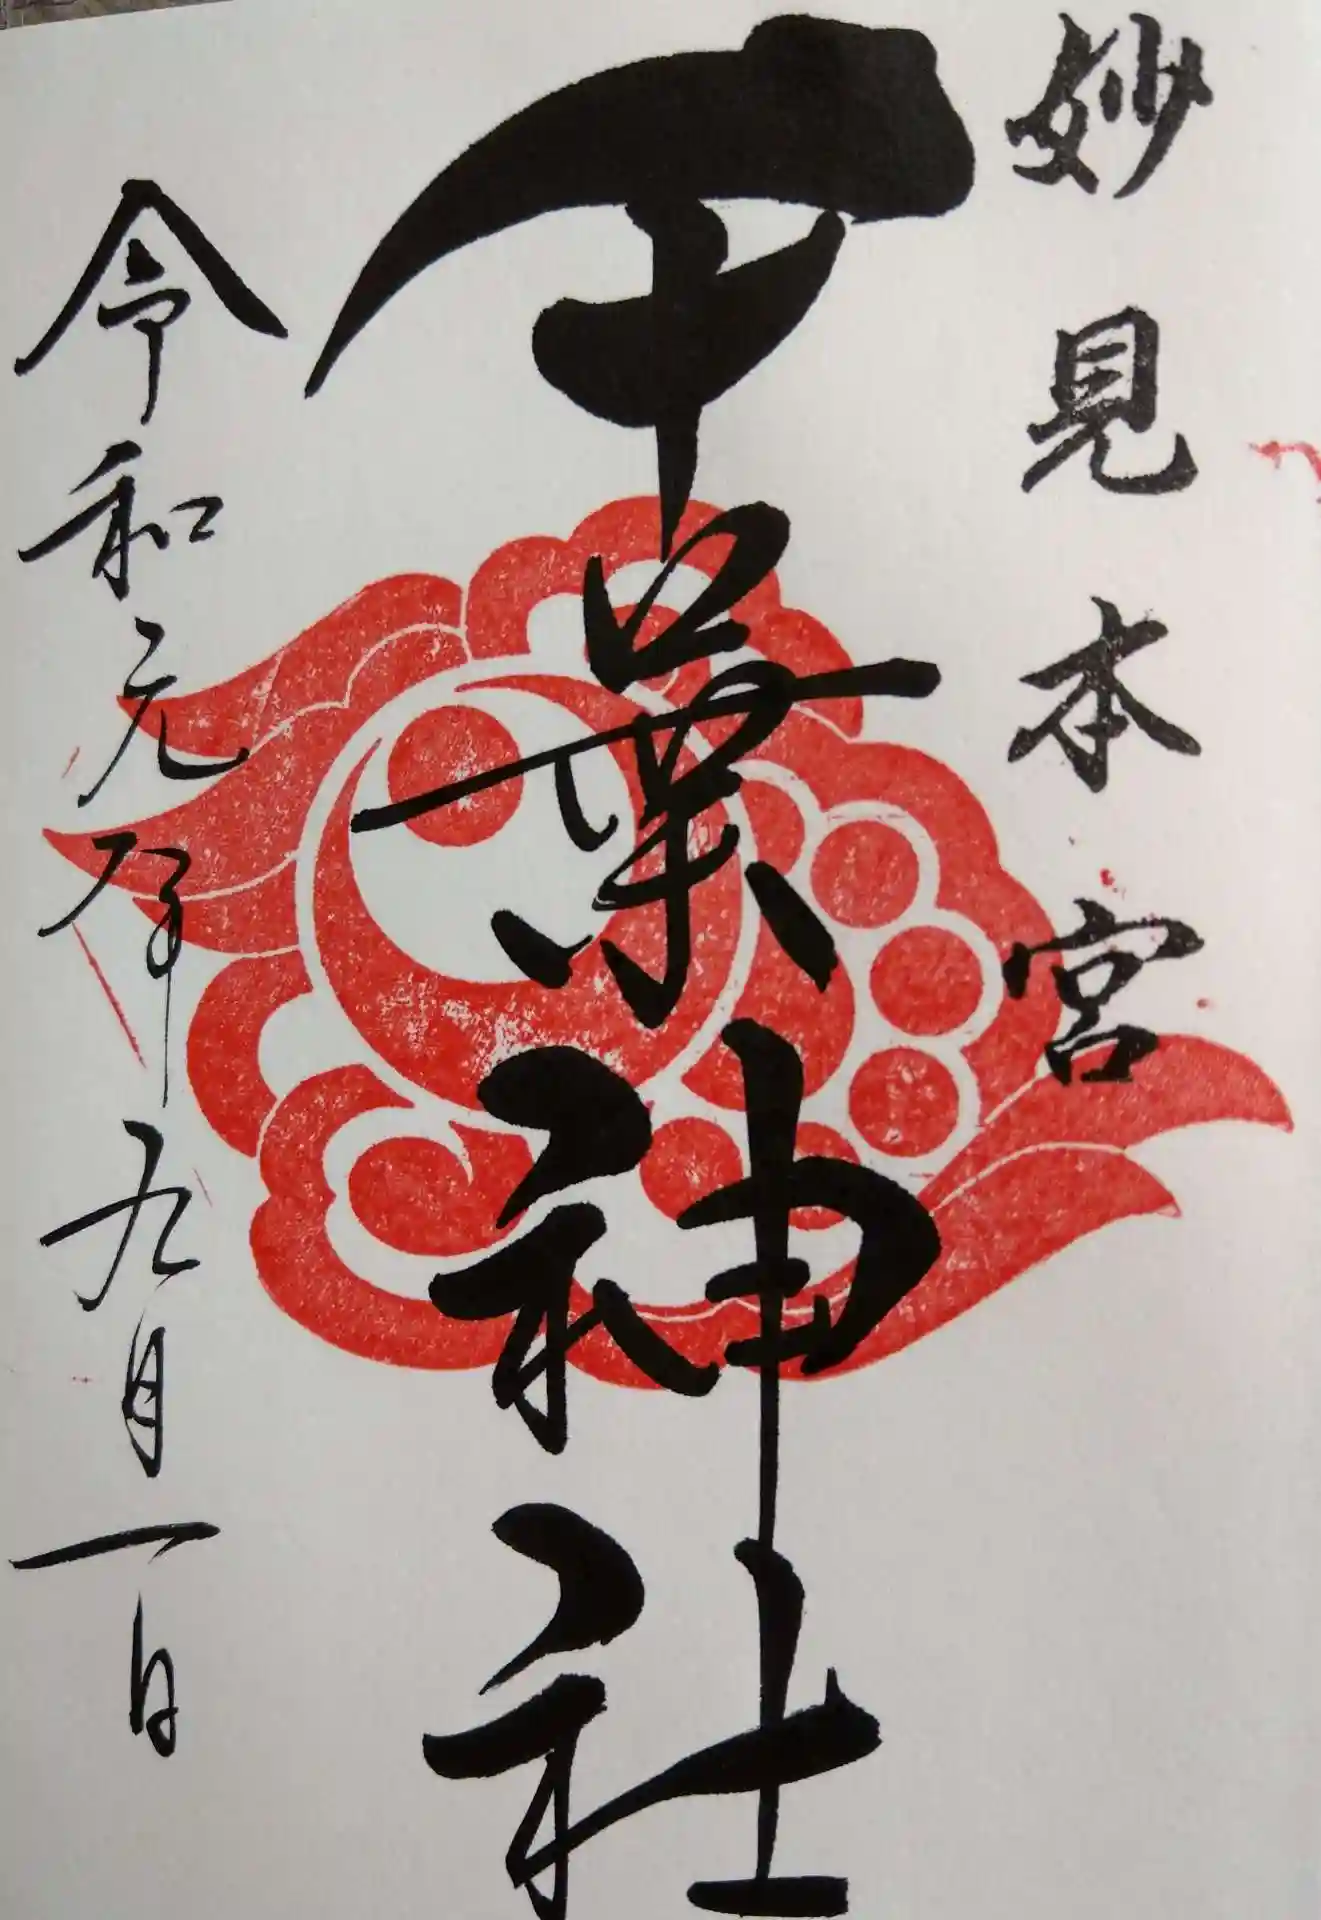 妙見本宮
千葉神社
令和元年九月一日